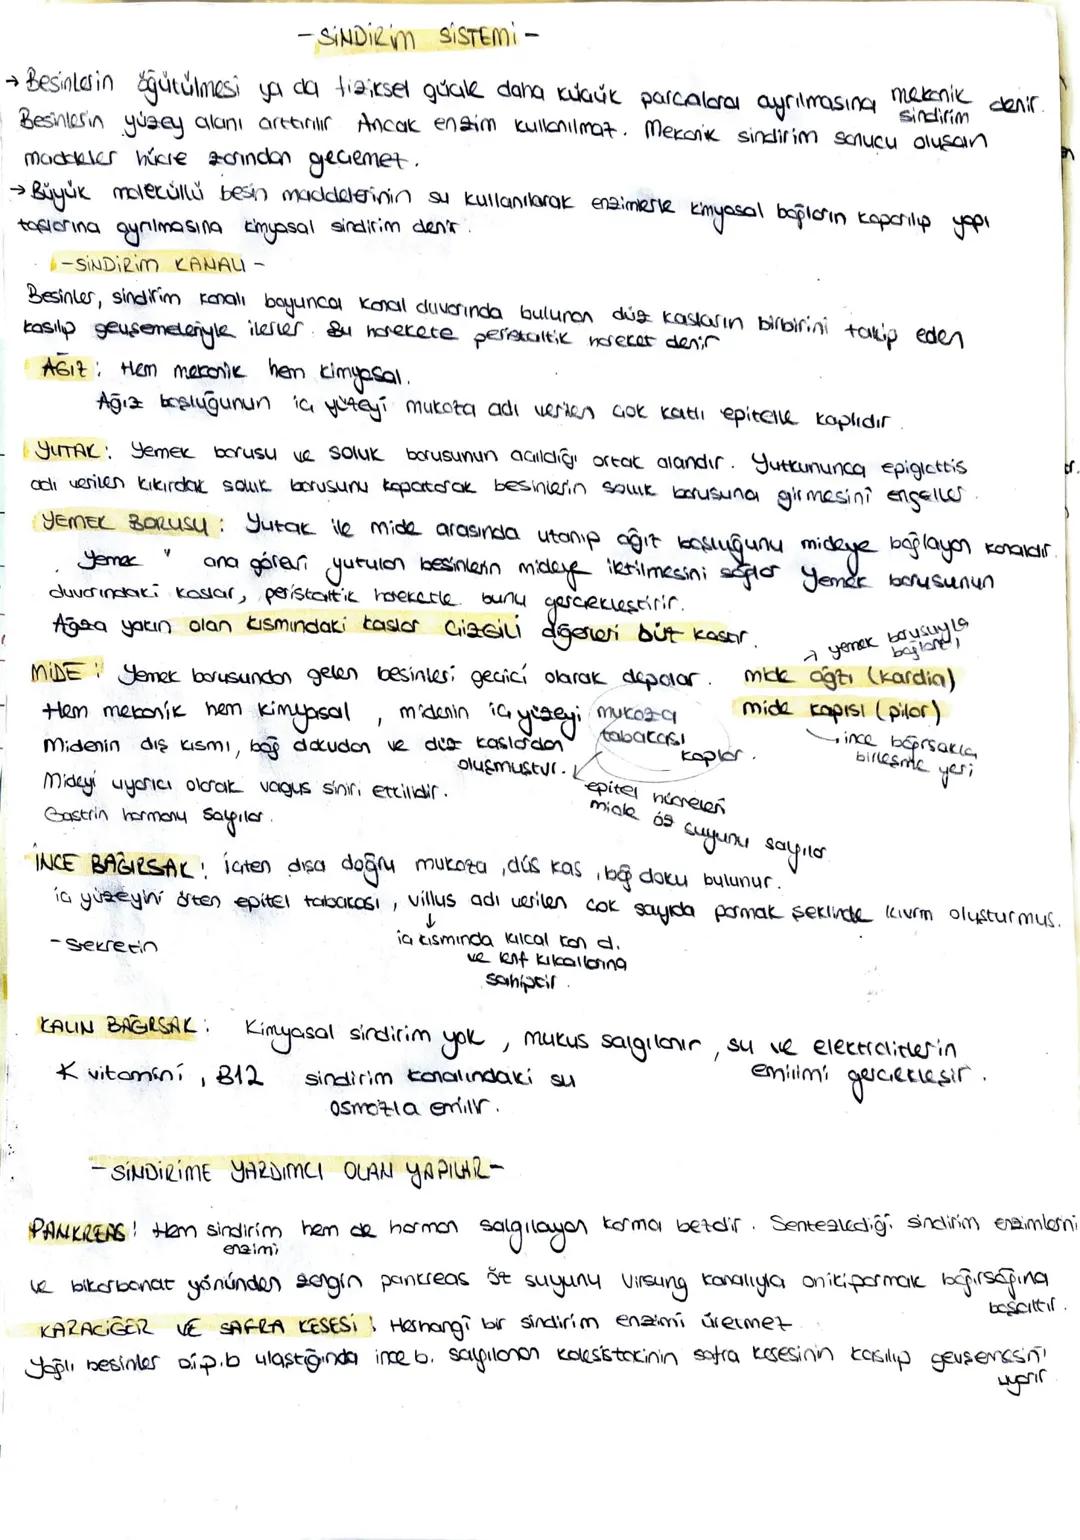 -SİNDİRİM SİSTEMİ-
→ Besinlerin öğütülmesi ya da fiziksel güçle daha küçük parçalara ayrılmasına mekanik sindirim denir.
Besinlerin yüzey alanı arttırılır. Ancak enzim kullanılmaz. Mekanik sindirim sonucu oluşan
maddeler hücre zarından geçemez.
→ Büyük moleküllü besin maddelerinin su kullanılarak enzimlerle kimyasal bağların koparılıp yapı
taşlarına ayrılmasına kimyasal sindirim denir.
-SİNDİRİM KANALI-
Besinler, sindirim kanalı boyunca kanal duvarında bulunan düz kasların birbirini takip eden
kasılıp gevşemeleriyle ilerler. Bu harekete peristaltik hareket denir
AĞIZ: Hem mekanik hem kimyasal.
Ağız boşluğunun iç yüzeyi mukoza adı verilen çok katlı epitelle kaplıdır.
YUTAK: Yemek borusu ve soluk borusunun açıldığı ortak alandır. Yutkununca epiglottis
adı verilen kıkırdak soluk borusunu kapatarak besinlerin soluk borusuna girmesini engeller.
YEMEK BORUSU: Yutak ile mide arasında uzanıp ağız boşluğunu mideye bağlayan kanaldır.
Yemek " ana görevi yutulan besinlerin mideye iletilmesini sağlar Yemek borusunun
duvarındaki kaslar, peristaltik hareketle bunu gerçekleştirir.
Ağıza yakın olan kısmındaki kaslar ÇİZGİLİ diğerleri düz kastır.
MİDE: Yemek borusundan gelen besinleri geçici olarak depolar. mide ağzı (kardia)
→ yemek borusuyla bağlantı
Hem mekanik hem kimyasal, midenin iç yüzeyi mukoza tabakası kaplar. mide kapısı (pilor)
→ ince bağırsakla birleşme yeri
Midenin dış kısmı, bağ dokudan ve düz kaslardan oluşmuştur.
epitel hücreleri mide öz suyunu salgılar
Mideyi uyarıcı olarak vagus siniri etkilidir.
Gastrin hormonu salgılar.
İNCE BAĞIRSAK: içten dışa doğru mukoza, düs kas, bağ doku bulunur.
iç yüzeyini örten epitel tabakası, villus adı verilen çok sayıda parmak şeklinde kıvrım oluşturmuş.
- Sekretin
iç kısmında kılcal kan d.
ve lenf kılcallarına
sahiptir.
KALIN BAĞIRSAK: Kimyasal sindirim yok, mukus salgılanır, su ve elektrolitlerin
emilimi gerçekleşir.
K vitamini, B12 sindirim kanalındaki su
osmozla emilir.
-SİNDİRİME YARDIMCI OLAN YAPILAR-
PANKREAS: Hem sindirim enzimi hem de hormon salgılayan karma bezdir. Sentezlediği sindirim enzimlerini
ve bikarbonat yönünden zengin pankreas öz suyunu Virsung kanalıyla onikiparmak bağırsağına
boşaltır.
KARACİĞER VE SAFRA KESESİ: Herhangi bir sindirim enzimi üretmez.
Yağlı besinler o.i.p.b ulaştığında ince b. salgılanan kolesistokinin safra kesesinin kasılıp gevşemesini
uyarır